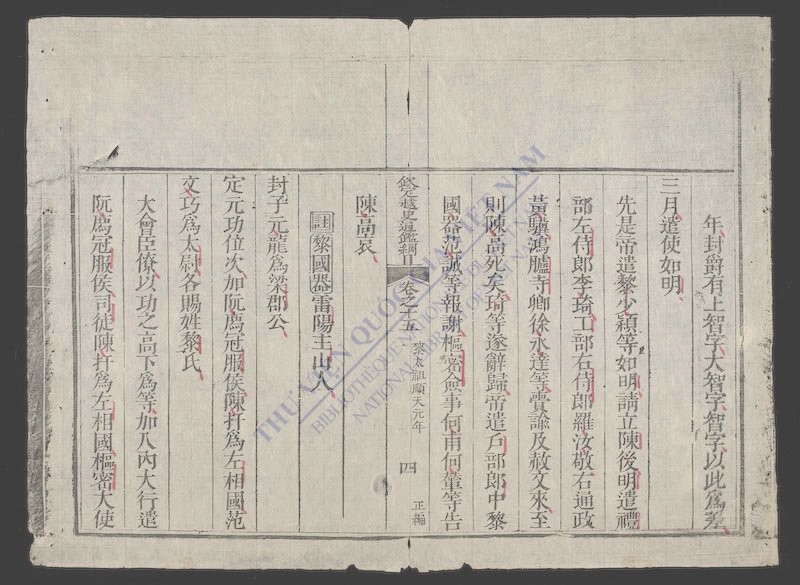 年封爵有上智字大智字智字以此為差
三月遣使如明
先是帝遣黎少穎等如明請立陳後明遣禮
部左侍郎李琦工部右侍郎羅汝敬右通政
黃驥鴻臚寺卿徐永達等賫詔及赦文來至
則陳暠死矣琦等遂辭歸帝遣戶部郎中黎
國器范誠等報謝樞密僉事何甫何董等告
欽定越史通鑑綱目 卷之十五 黎太祖順天元年 四 正編
陳暠哀
註 黎國器雷陽主山人
封子元龍為梁郡公
定元功位次加阮廌冠服侯陳扞為左相國范
文巧為太尉各賜姓黎氏
大會臣僚以功之高下為等加入內大行遣
阮廌冠服侯司徒陳扞為左相國樞密大使
THƯ VIỆN QUỐC GIA VIỆT NAM
BIBLIOTHÈQUE NATIONALE DU VIETNAM
NATIONAL LIBRARY OF VIETNAM